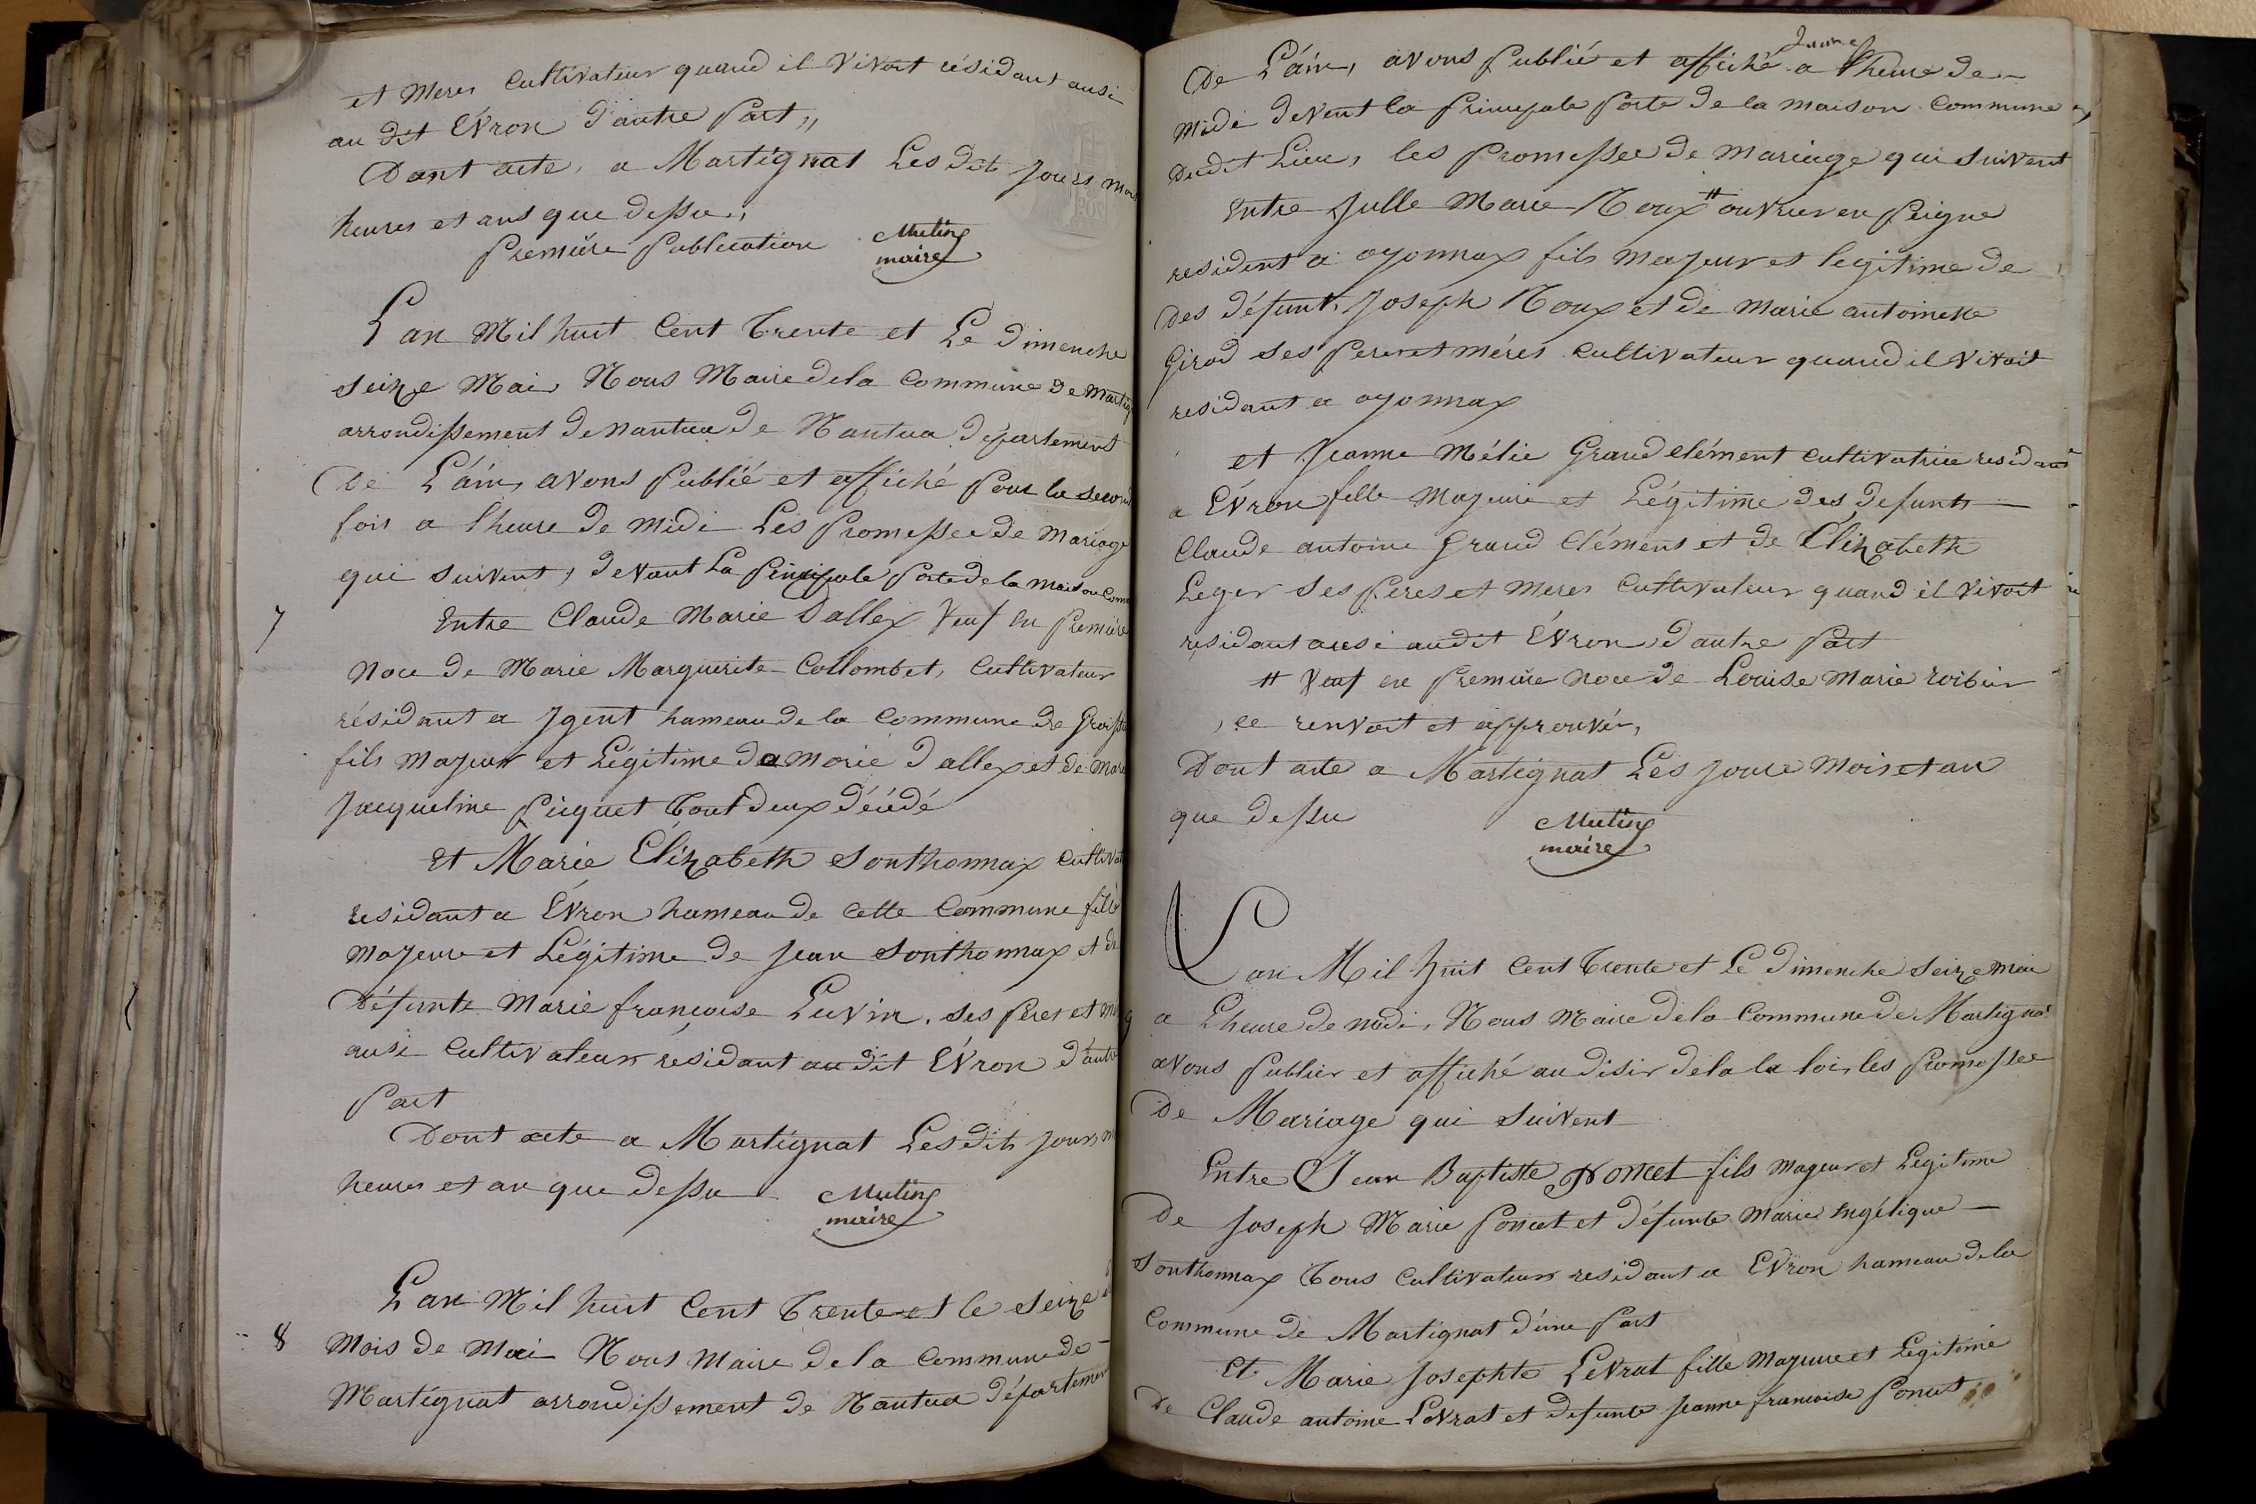 et meres cultivateur quand il vivoit résidant ausi
au dit Évron d'autre part,,
Dont acte, a Martignat Les dits jours mois
heures et ans que dessu,,
Premiere Publication Mutin
maire
L'an Mil huit Cent Trente et Le dimenche
seize Mai, Nous Maire dela Commune de Martig
arrondissement de nantua de Nantua département
De L'áin, avons Publié et affiché Pour la second
fois a l'heure de midi Les Promessee de Mariage
qui suivent, devant La Principale Porte de la maison Com
7 Entre Claude Marie Dallex Veuf en Premiere
noce de Marie Marguerite Collombet, Cultivateur
résidant a Jgent hameau de la Commune de Groiss
fils majeur et Légitime de Marie Dallex et de Marie
Jacqueline Picquet tout deux décédé
Et Marie Élizabeth Sonthonnax Cultivat
residant a Évron hameau de cette Commune fille
majeure et Légitime de Jean Sonthonnax et de
Défunte Marie francoise Luvin, ses Peres et m
ausi Cultivateurs résidant au dit Évron d'autre
Part
Dont acte a Martignat Les dits jours m
heures et an que dessu Mutin
maire
L'an Mil huit Cent Trente et le seize
8 Mois de Mai Nous Maire de la Commune de
Martignat arrondissement de Nantua département
De L'áin, avons Publié et affiché a l'heure de
midi devent la Principale Porte de la maison Commune
Dudit Lieu, les Promessee de mariage qui suivent
Entre Julle Marie Roux # ouvrier en Peigne
resident a oyonnax fils majeur et legitime de
Des défunt, Joseph Roux et de Marie antoinette
Girod ses Peres et méres Cultivateur quand il vivoit
residant a oyonnax
et Jeanne Mélie Grand clément cultivatrice residant
a Évron fille Majeure et Légitime des defunts
Claude antoine Grand Clément et de Élizabeth
Leger ses Peres et Meres Cultivateur quand il vivoit
residant ausi audit Évron, d'autre Part
# Veuf en Premiere noce de Louise Marie
, ce renvoit et approuvér,
Dont acte a Martignat Les jours Mois et an
que dessu Mutin
maire
L'an Mil huit Cent Trente et Le Dimenche seize mai
a L'heure de midi, Nous Maire dela Commune de Martignat
avons Publier et affiché au disir dela la loi, les Promessee
De Mariage qui suivent
Entre Jean Baptiste Poncet fils majeur et Legitime
De Joseph Marie Poncet et défunte Marie Engélique
Sonthonnax Tous Cultivateurs residant a Evron hameau dela
Commune de Martignat d'une Part
Et Marie Josephte Levrat fille Majeure et Legitime
De Claude antoine Levrat et defunte Jeanne francoise Poncet